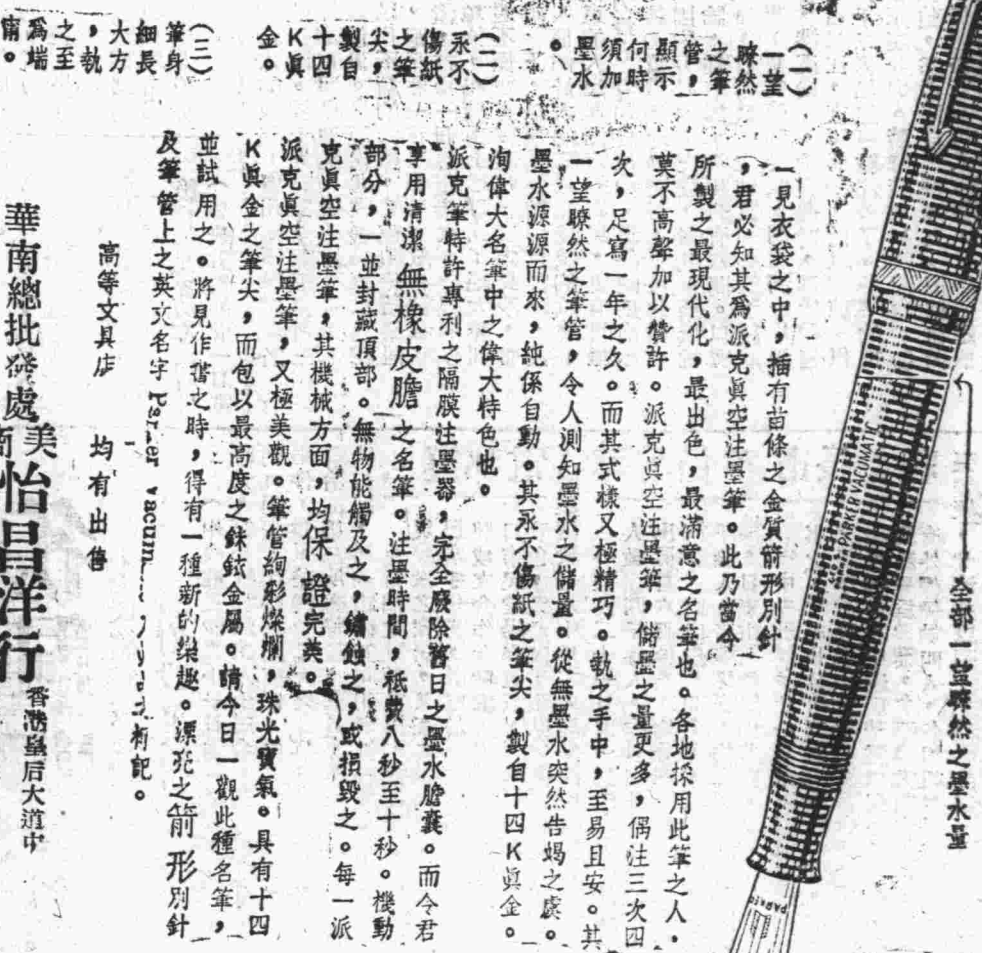 (一)
一望
瞭然
之筆
管,
顯示
何時
須加
墨水
。
(二)
永不
傷紙
之筆
尖,
製自
十四
K眞
金。
(三)
筆身
細長
大方
,執
之至
爲端
一見衣袋之中,插有苗條之金質箭形別針
,君必知其爲派克眞空注墨筆。此乃當今
所製之最現代化,最出色,最滿意之名筆也。各地採用此筆之人,
莫不高聲加以贊許。派克眞空注墨筆,儲墨之量更多,偶注三次四
次,足寫一年之久。而其式樣又極精巧。執之手中,至易且安。其
一望瞭然之筆管,令人測知墨水之儲量。從無墨水突然告竭之虞。
墨水源源而來,純係自動。其永不傷紙之筆尖,製自十四K眞金。
洵偉大名筆中之偉大特色也。
派克筆特許專利之隔膜注墨器,完全廢除舊日之墨水膽囊。而令君
享用清潔無橡皮膽之名筆。注墨時間,祗費八秒至十秒。機動
部分,一並封藏頂部。無物能觸及之,鏽蝕之,或損毀之。每一派
克眞空注墨筆,其機械方面,均保證完美。
派克眞空注墨筆,又極美觀。筆管絢彩燦爛,珠光寶氣。具有十四
K眞金之筆尖,而包以最高度之銥鉉金屬。請今日一觀此種名筆,
並試用之。將見作書之時,得有一種新的樂趣。漂亮之箭形別針
及筆管上之英文名字 Parker Vacumatic
標記。
高等文具店
均有出售
華南總批發處
美
怡昌洋行
香港皇后大道中
全部一望瞭然之墨水量
PARKER VACUMATIC
PARKER